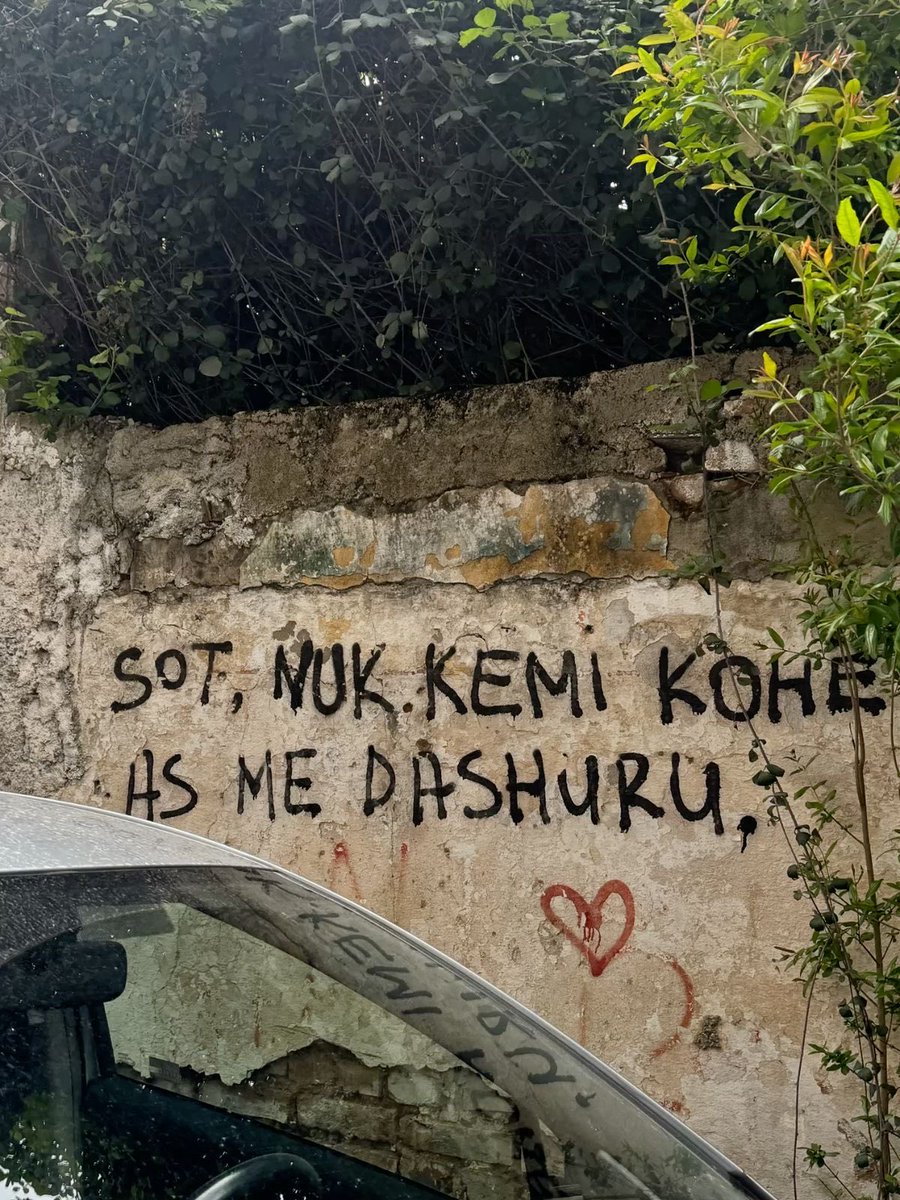 SOT, NUK KEMI KOHE
AS ME DASHURU.